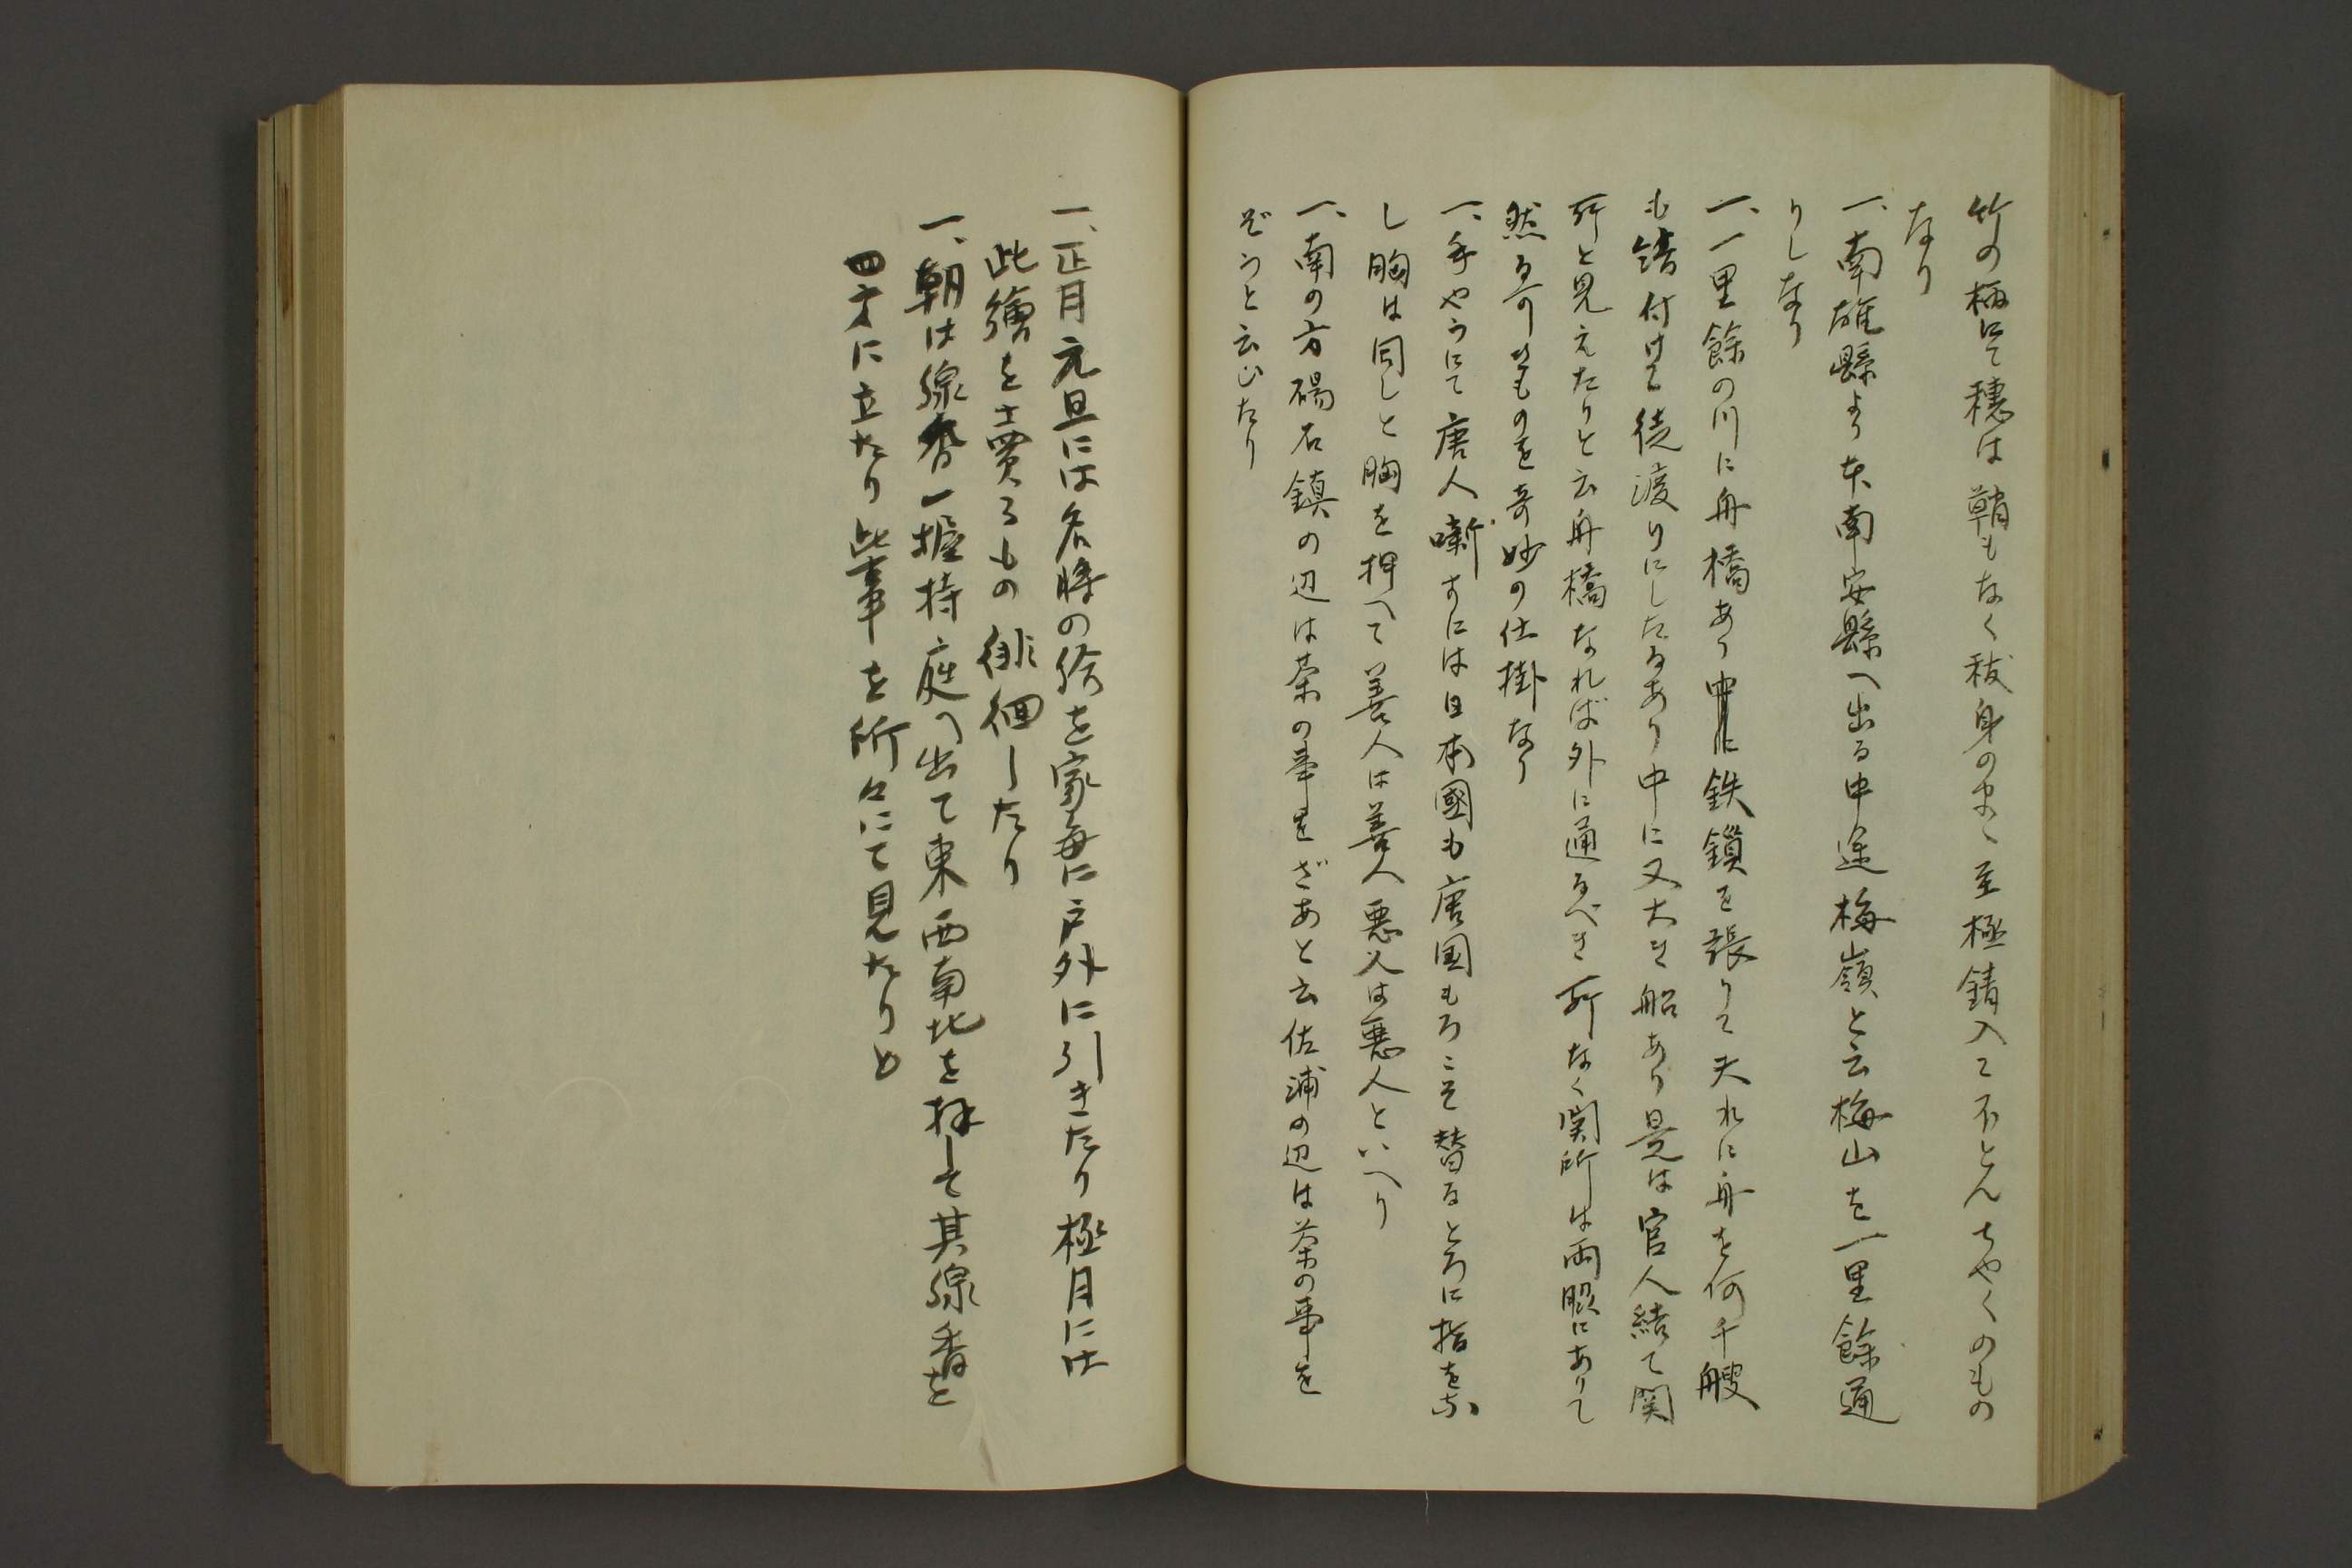 竹の柄にて穂は鞘もなく秡身のまゝ至極錆入て不とんちやくのもの
なり
一、南雄縣より本南安縣へ出る中途梅嶺と云梅山を一里餘通
りしなり
一、一里餘の川に舟橋あり中に鉄鎖を張りて夫れに舟を何千艘
も繋付けて徒渡りにしたるあり中に又大き船あり是は官人結て関
所と見えたりと云舟橋なれば外に通るべき所なく関所は両
にありて
然る可いものを奇妙の仕掛なり
一、手やうにて唐人噺すには日本國も唐国もろこそ替るところに指をな
し胸は同しと胸を押へて善人は善人悪人は悪人といへり
一、南の方碭石鎮の辺は茶の事をざあと云佐浦の辺は茶の事を
ぞうと云ひたり
一、正月元旦には名時の絵を家毎に戸外に引きたり極月には
此繪を賣るもの徘徊したり
一、朝は線香一握持庭へ出て東西南北を拝して其線香を
四方に立たり此事を所々にて見たりと